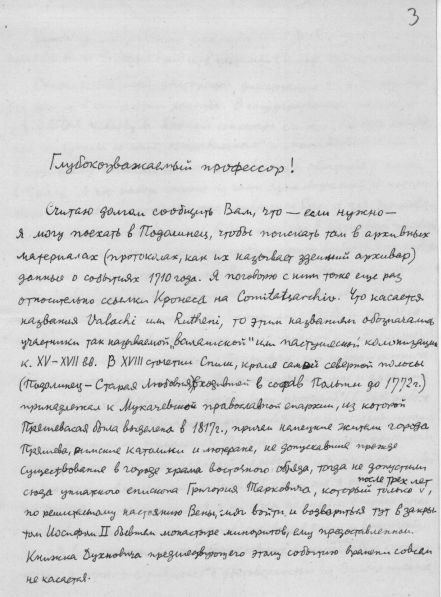 3
Глубокоуважаемый профессор!
Считаю долгом сообщить Вам, что — если нужно —
я могу поехать в Подолинец, чтобы поискать там в архивных
материалах (протоколах, как их называет здешний архивар)
данные о событиях 1710 года. Я поговорю с ним тоже еще раз
относительно ссылки Кронеса на Comitatsarchiv. Что касается
названия Valachi или Rutheni, то этим названием обозначались
участники так называемой „волошской" или пастушеской колонизации
к. XV–XVII вв. В XVIII столетии Спиш, кроме самой северной полосы
(Подолинец – Старая Любовня, входившей в состав Польши до 1772г.)
принадлежал к Мукачевской православной епархии, из которой
Пряшевская была выделена в 1817г., причем немецкие жители города
Пряшева, римские католики и лютеране, не допускавшие прежде
существование в городе храма восточного обряда, тогда не допустили
сюда униатского епископа Григория Тарковича, который только после трех лет,
по решительному настоянию Вены, мог войти и водвориться тут в закры-
том Иосифом II бывшем монастыре миноритов, ему предоставленном.
Книжка Духновича предшествующего этому событию времени совсем
не касается.